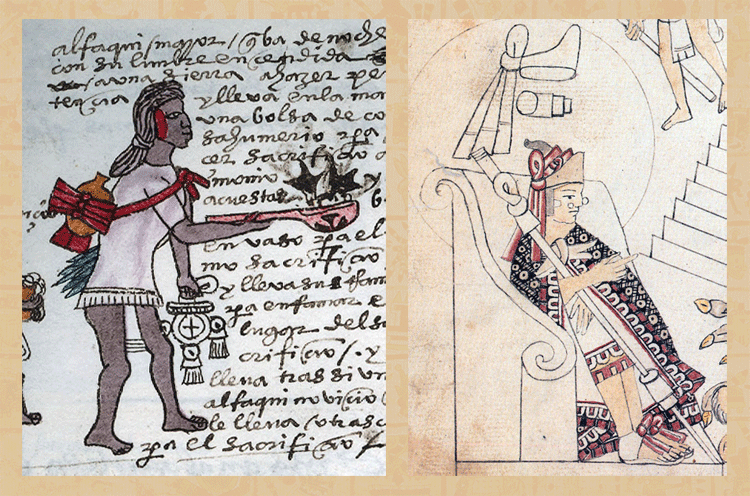 alfaqui mayor / q̃ va de noche
con su lumbre encendida
a una sierra a hazer pe
tencia y lleva en la ma
una bolsa de co
sahumerio pa
cer sacrifiçio a
monio
acuestas
en vaso pa el
mo sacrifiçio
y lleva sus
pa
lugar del s
crifiçio / . y
lleva tras si un
alfaqui noviçio
le lleva / otras
pa el sacrifiçio